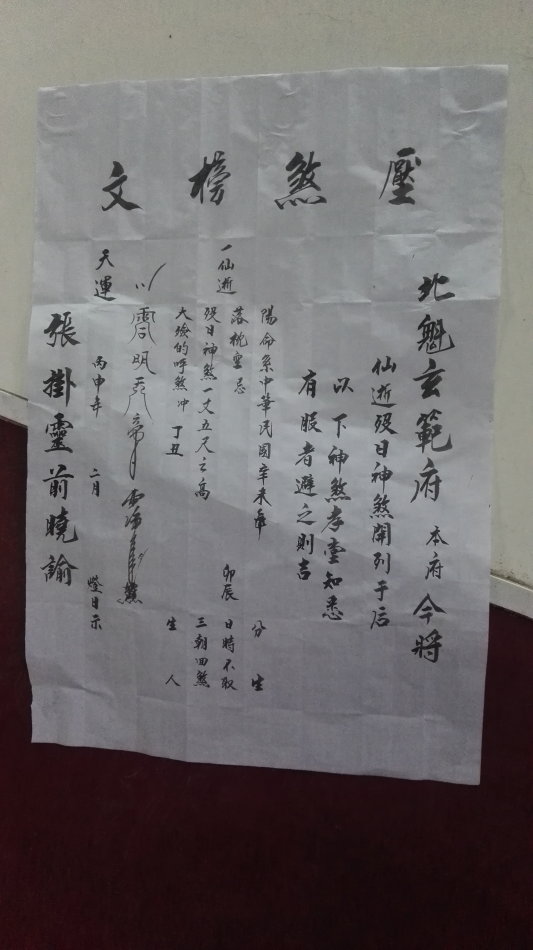 壓煞榜文
北魁玄範府 本府今將
仙逝歿日神煞開列于后
以下神煞孝堂知悉
有服者避之則吉
陽命系中華民國辛未年 分生
一仙逝 落枕空忌 卯辰 日時不取
歿日神煞一丈五尺之高 三朝回煞
大殮的呼煞冲 丁丑 生人
天運 丙申年 二月 日示
張掛靈前曉諭